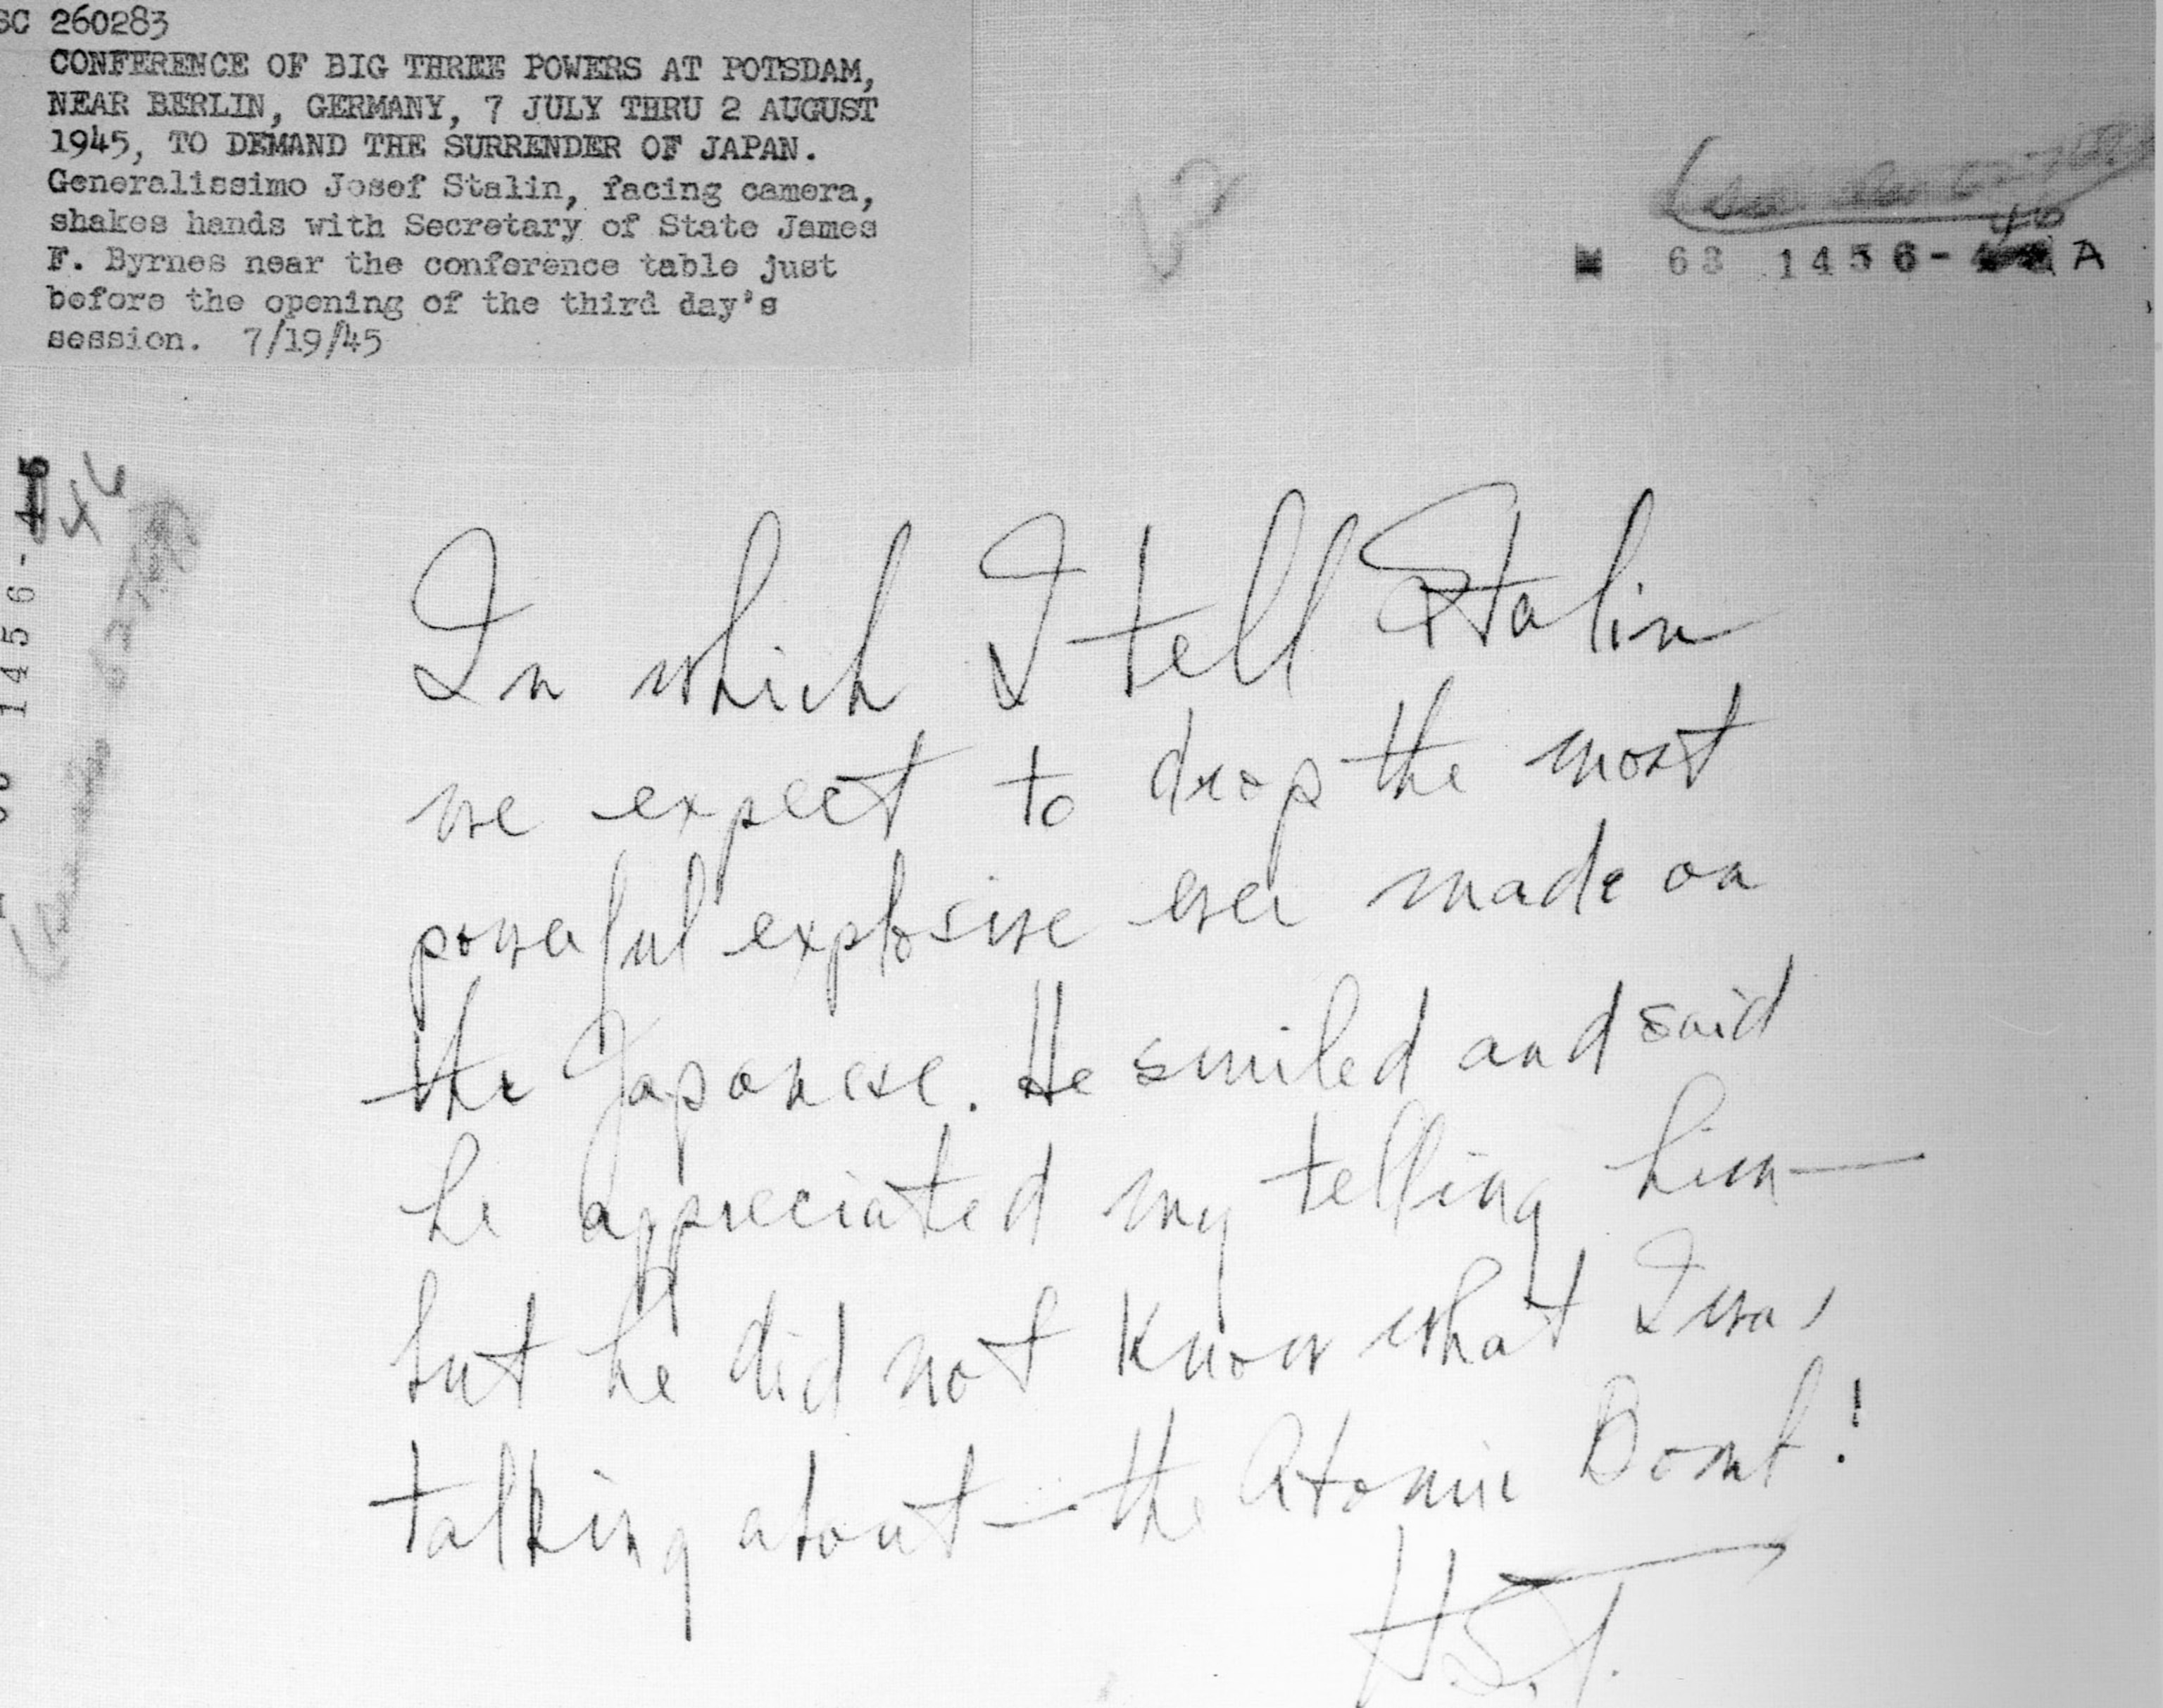 SC 260283
CONFERENCE OF BIG THREE POWERS AT POTSDAM,
NEAR BERLIN, GERMANY, 7 JULY THRU 2 AUGUST
1945, TO DEMAND THE SURRENDER OF JAPAN.
Generalissimo Josef Stalin, facing camera,
shakes hands with Secretary of State James
F. Byrnes near the conference table just
before the opening of the third day's
session. 7/19/45
63 1456-
46
A
1456-
46
In which I tell Stalin
we expect to drop the most
powerful explosive ever made on
the Japanese. He smiled and said
he appreciated my telling him—
but he did not know what I was
talking about—the Atomic Bomb!
H.S.T.